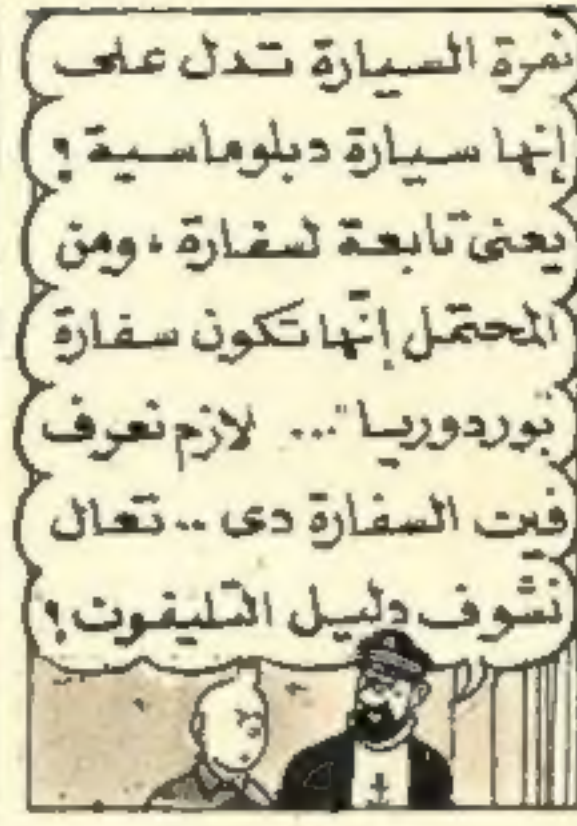 نمرة السيارة تدل على
إنها سيارة دبلوماسية !
يعنى تابعة لسفارة ، ومن
المحتمل إنّها تكون سفارة
بوردوريا" ... لازم نعرف
فين السفارة دى .. تعال
نشوف دليل التليفون !